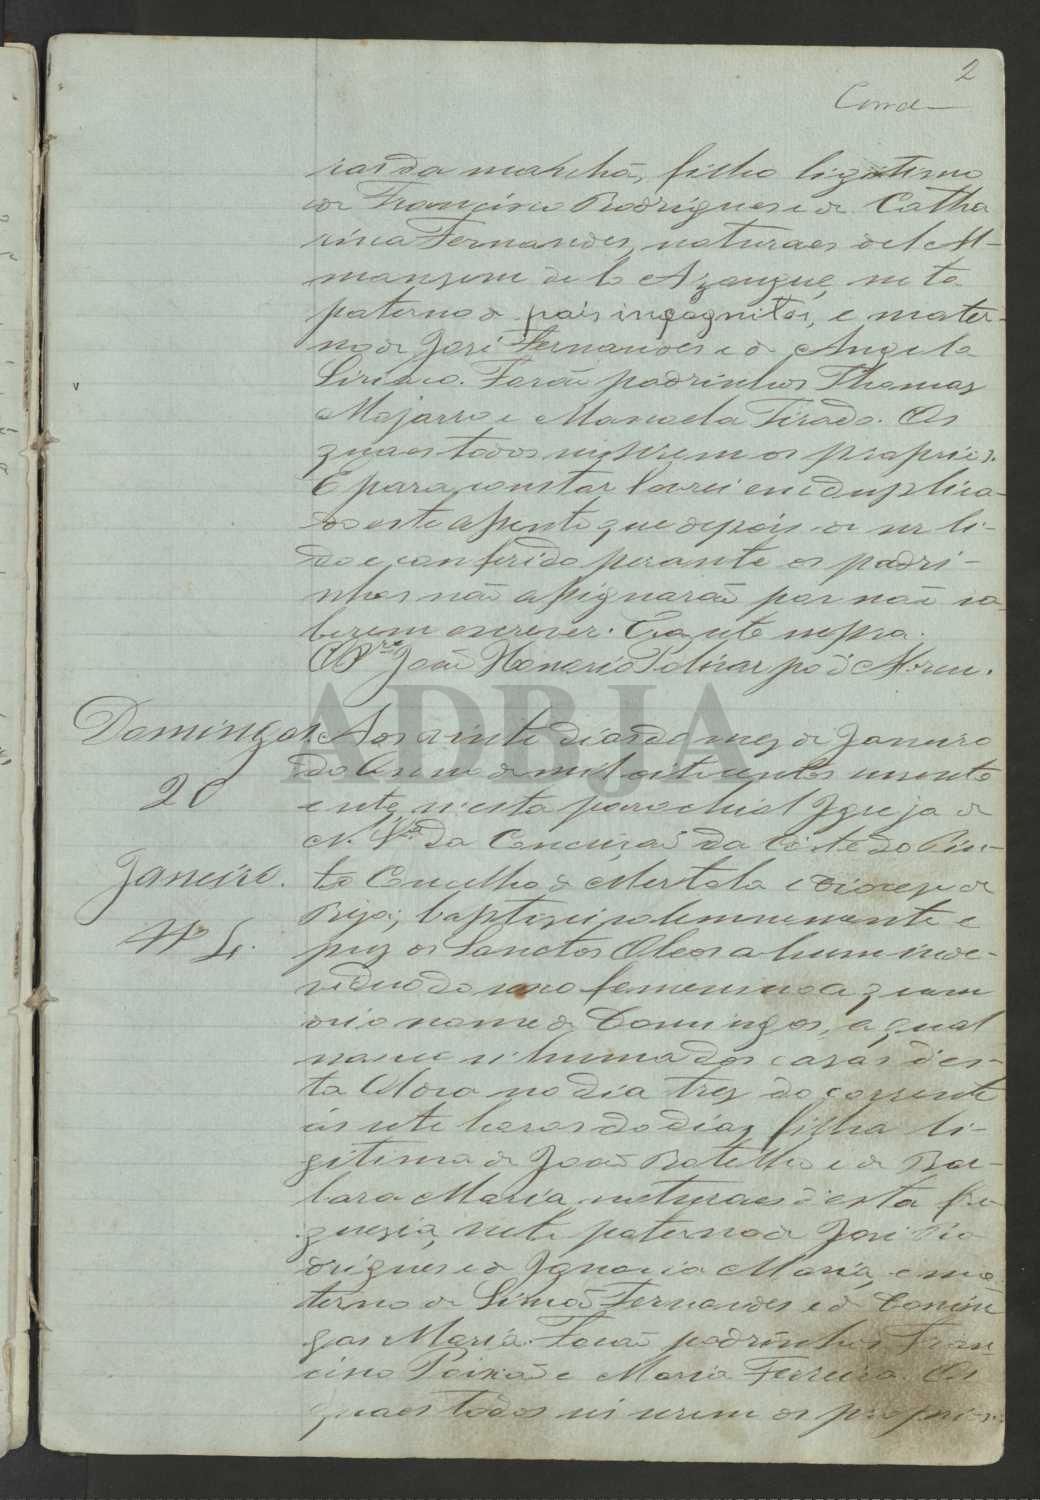 2
Conde
ras da manhã, filho ligitimo
de Francisco Rodrigues e de Catha
rina Fernandes, naturaes del Al-
manssem de la Azangue, neto
paterno de pais incognitos, e mater-
no de José Fernandes e de Angela
Sirinea. Forão padrinhos Thomaz
Mojarro e Manoela Tirado. Os
quaes todos sei serem os proprios.
E para constar lavrei em duplica-
do este assento que depois de ser li-
do e conferido perante os padri-
nhos não assignarão por não sa-
berem escrever. Era ut supra.
O Pr.e João Honorio Policarpo d'Abreu.
Domingas
20
Janeiro.
Nº 4.
Aos vinte dias do mez de Janeiro
do Anno de mil oitocentos sessenta
e sete, n'esta parochial Igreja de
N. Sr.a da Conceição da Côrte do Pin-
to Concelho de Mertola e Diocese de
Beja, baptizei solemnemente e
puz os Sanctos Oleos a hum indi-
viduo do sexo femenino a quem
dei o nome de Domingas, a qual
nasceu n'huma das casas d'es-
ta Aldea no dia trez do corrente
ás sete horas do dia, filha li-
gitima de João Botelho e de Bar-
bara Maria, naturaes d'esta fre
guezia, neta paterna de José Ro
drigues e de Ignacia Maria, e ma
terna de Simão Fernandes e de Domin
gas Maria. Forão padrinhos Fran
cisco Paixão e Maria Ferreira. Os
quaes todos sei serem os proprios.
ADBJA